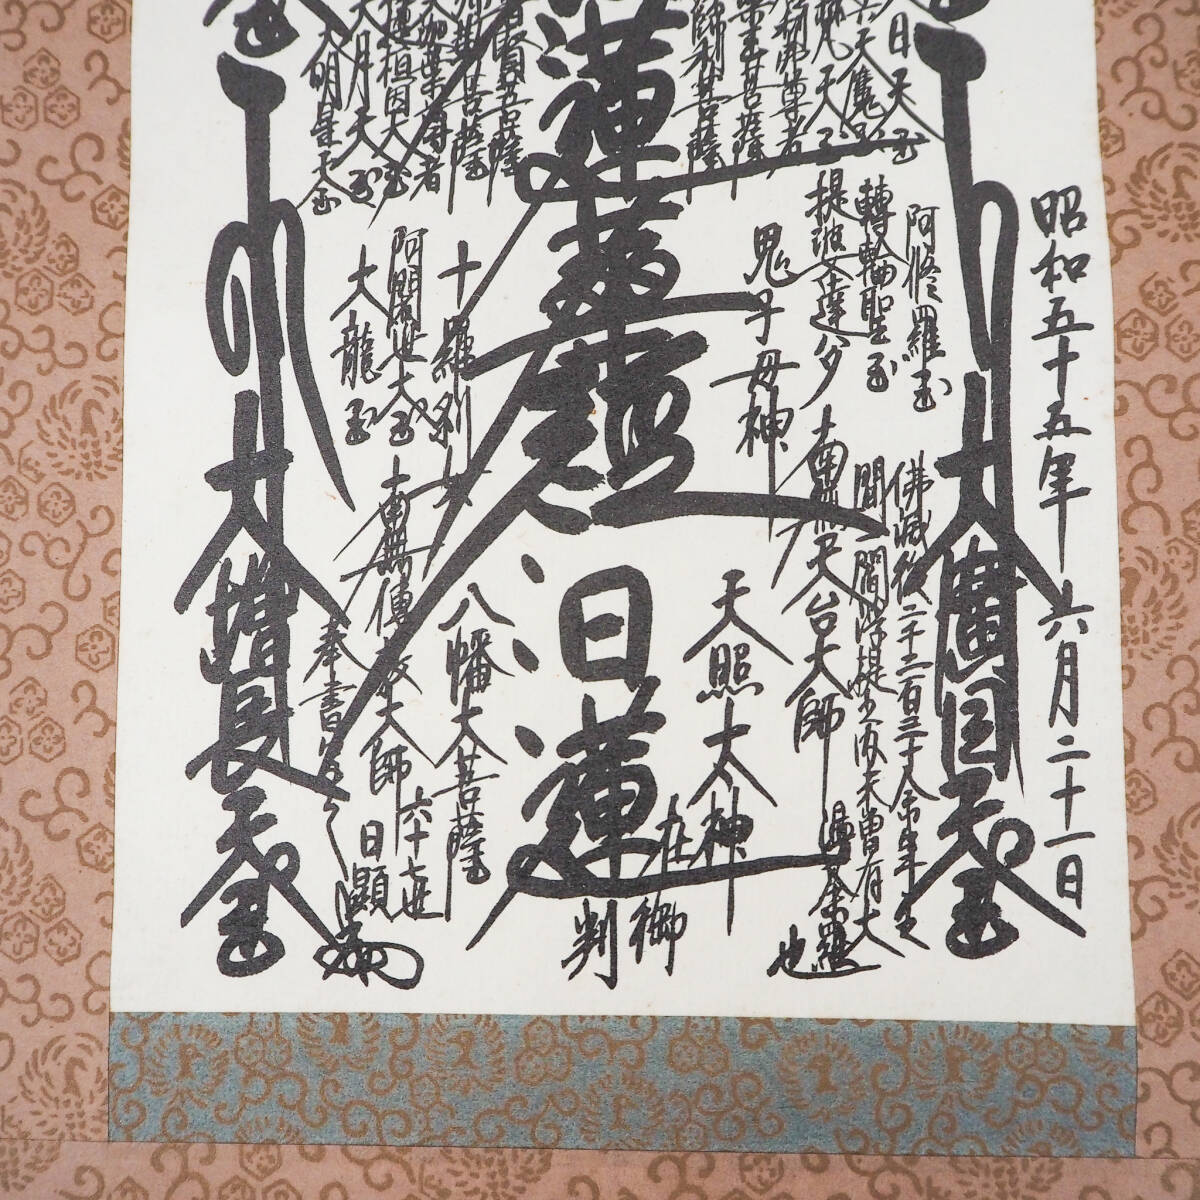 昭和五十五年六月二十一日
大廣目天玉
日天玉
六天魔王
阿修羅王
轉輪聖王
提婆達多
佛滅後二千二百三十余年之
間一閻浮提之内未曽有大
漫荼羅
也
南無天台大師
鬼子母神
天照太神
蓮華經
日蓮
在御
判
十羅刹女
八幡大菩薩
阿闍世大王
大龍王
南無傳教大師
大月天王
大明星天王
六十七世
日顯
奉書写之
大増長天玉